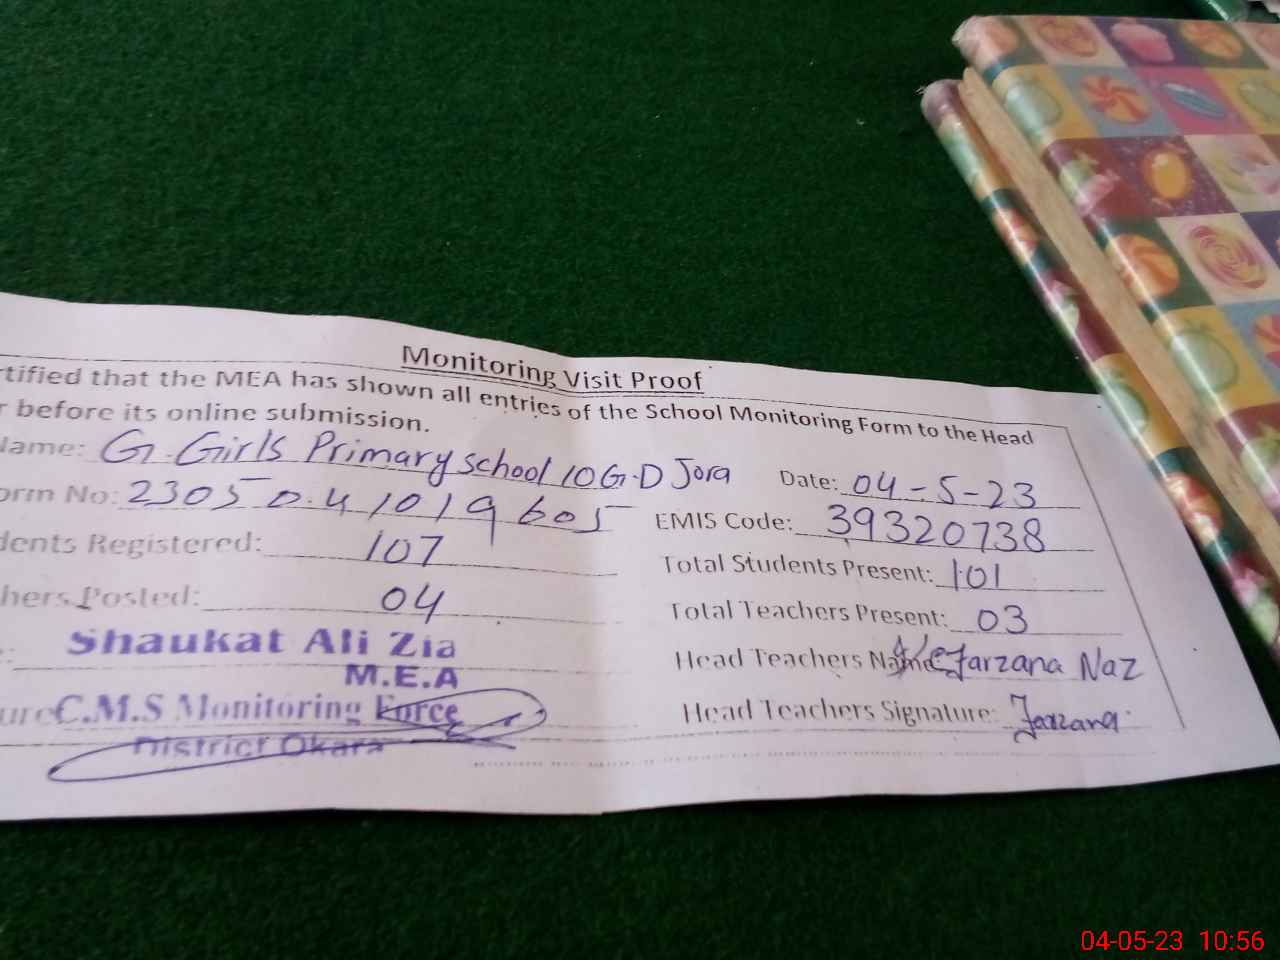 Monitoring Visit Proof
rtified that the MEA has shown all entries of the School Monitoring Form to the Head
r before its online submission.
Name: G.Girls Primary school 10G.D Jora Date: 04-5-23
orm No: 2305041019605 EMIS Code: 39320738
dents Registered: 107 Total Students Present: 101
hers Posted: 04 Total Teachers Present: 03
Shaukat Ali Zia
M.E.A
Head Teachers Name Farzana Naz
ure C.M.S Monitoring Force Head Teachers Signature: Farzana
District Okara
04-05-23 10:56